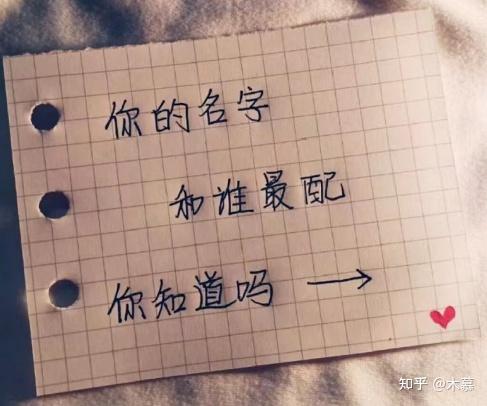 你的名字
和谁最配
你知道吗 →
知乎 @木慕